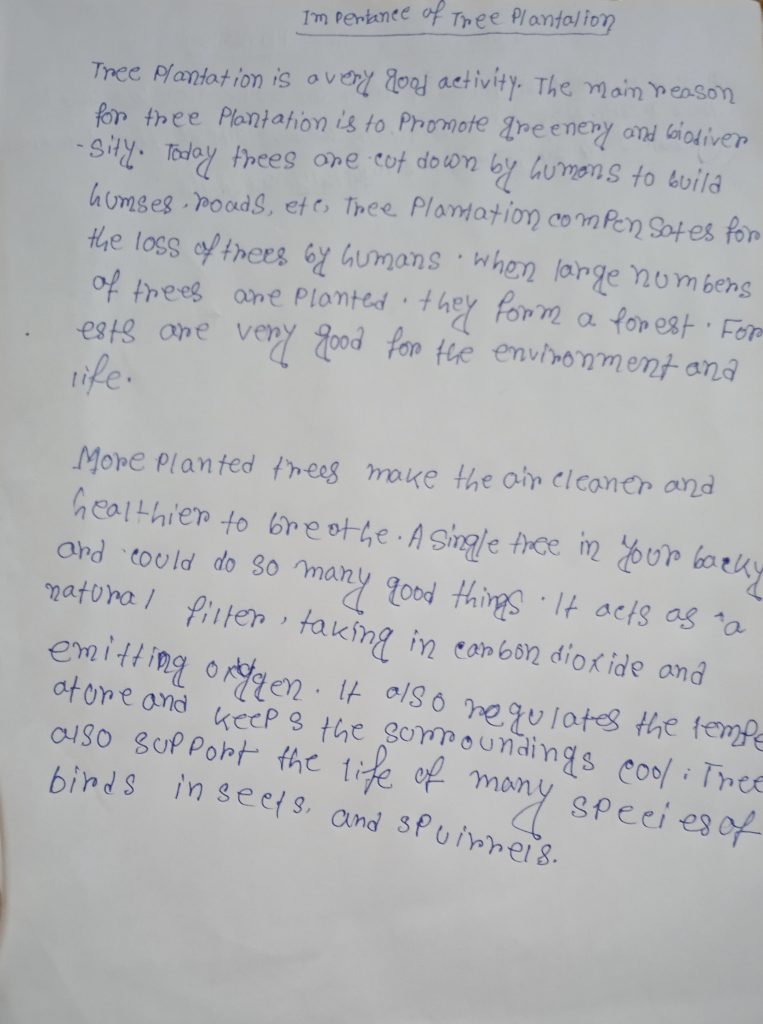 Impertance of Tree Plantation
Tree Plantation is a very good activity. The main reason
for tree Plantation is to Promote greenery and biodiver
-sity. Today trees are cut down by humans to build
humses, roads, etc, Tree Plantation compensates for
the loss of trees by humans. when large numbers
of trees are Planted, they form a forest. For
ests are very good for the environment and
life.
More Planted trees make the air cleaner and
healthier to breathe. A single tree in your backy
ard could do so many good things. It acts as a
natural filter, taking in carbon dioxide and
emitting oxygen. It also regulates the tempe
ature and keeps the surroundings cool. Tree
also support the life of many species of
birds insects, and spuirrels.